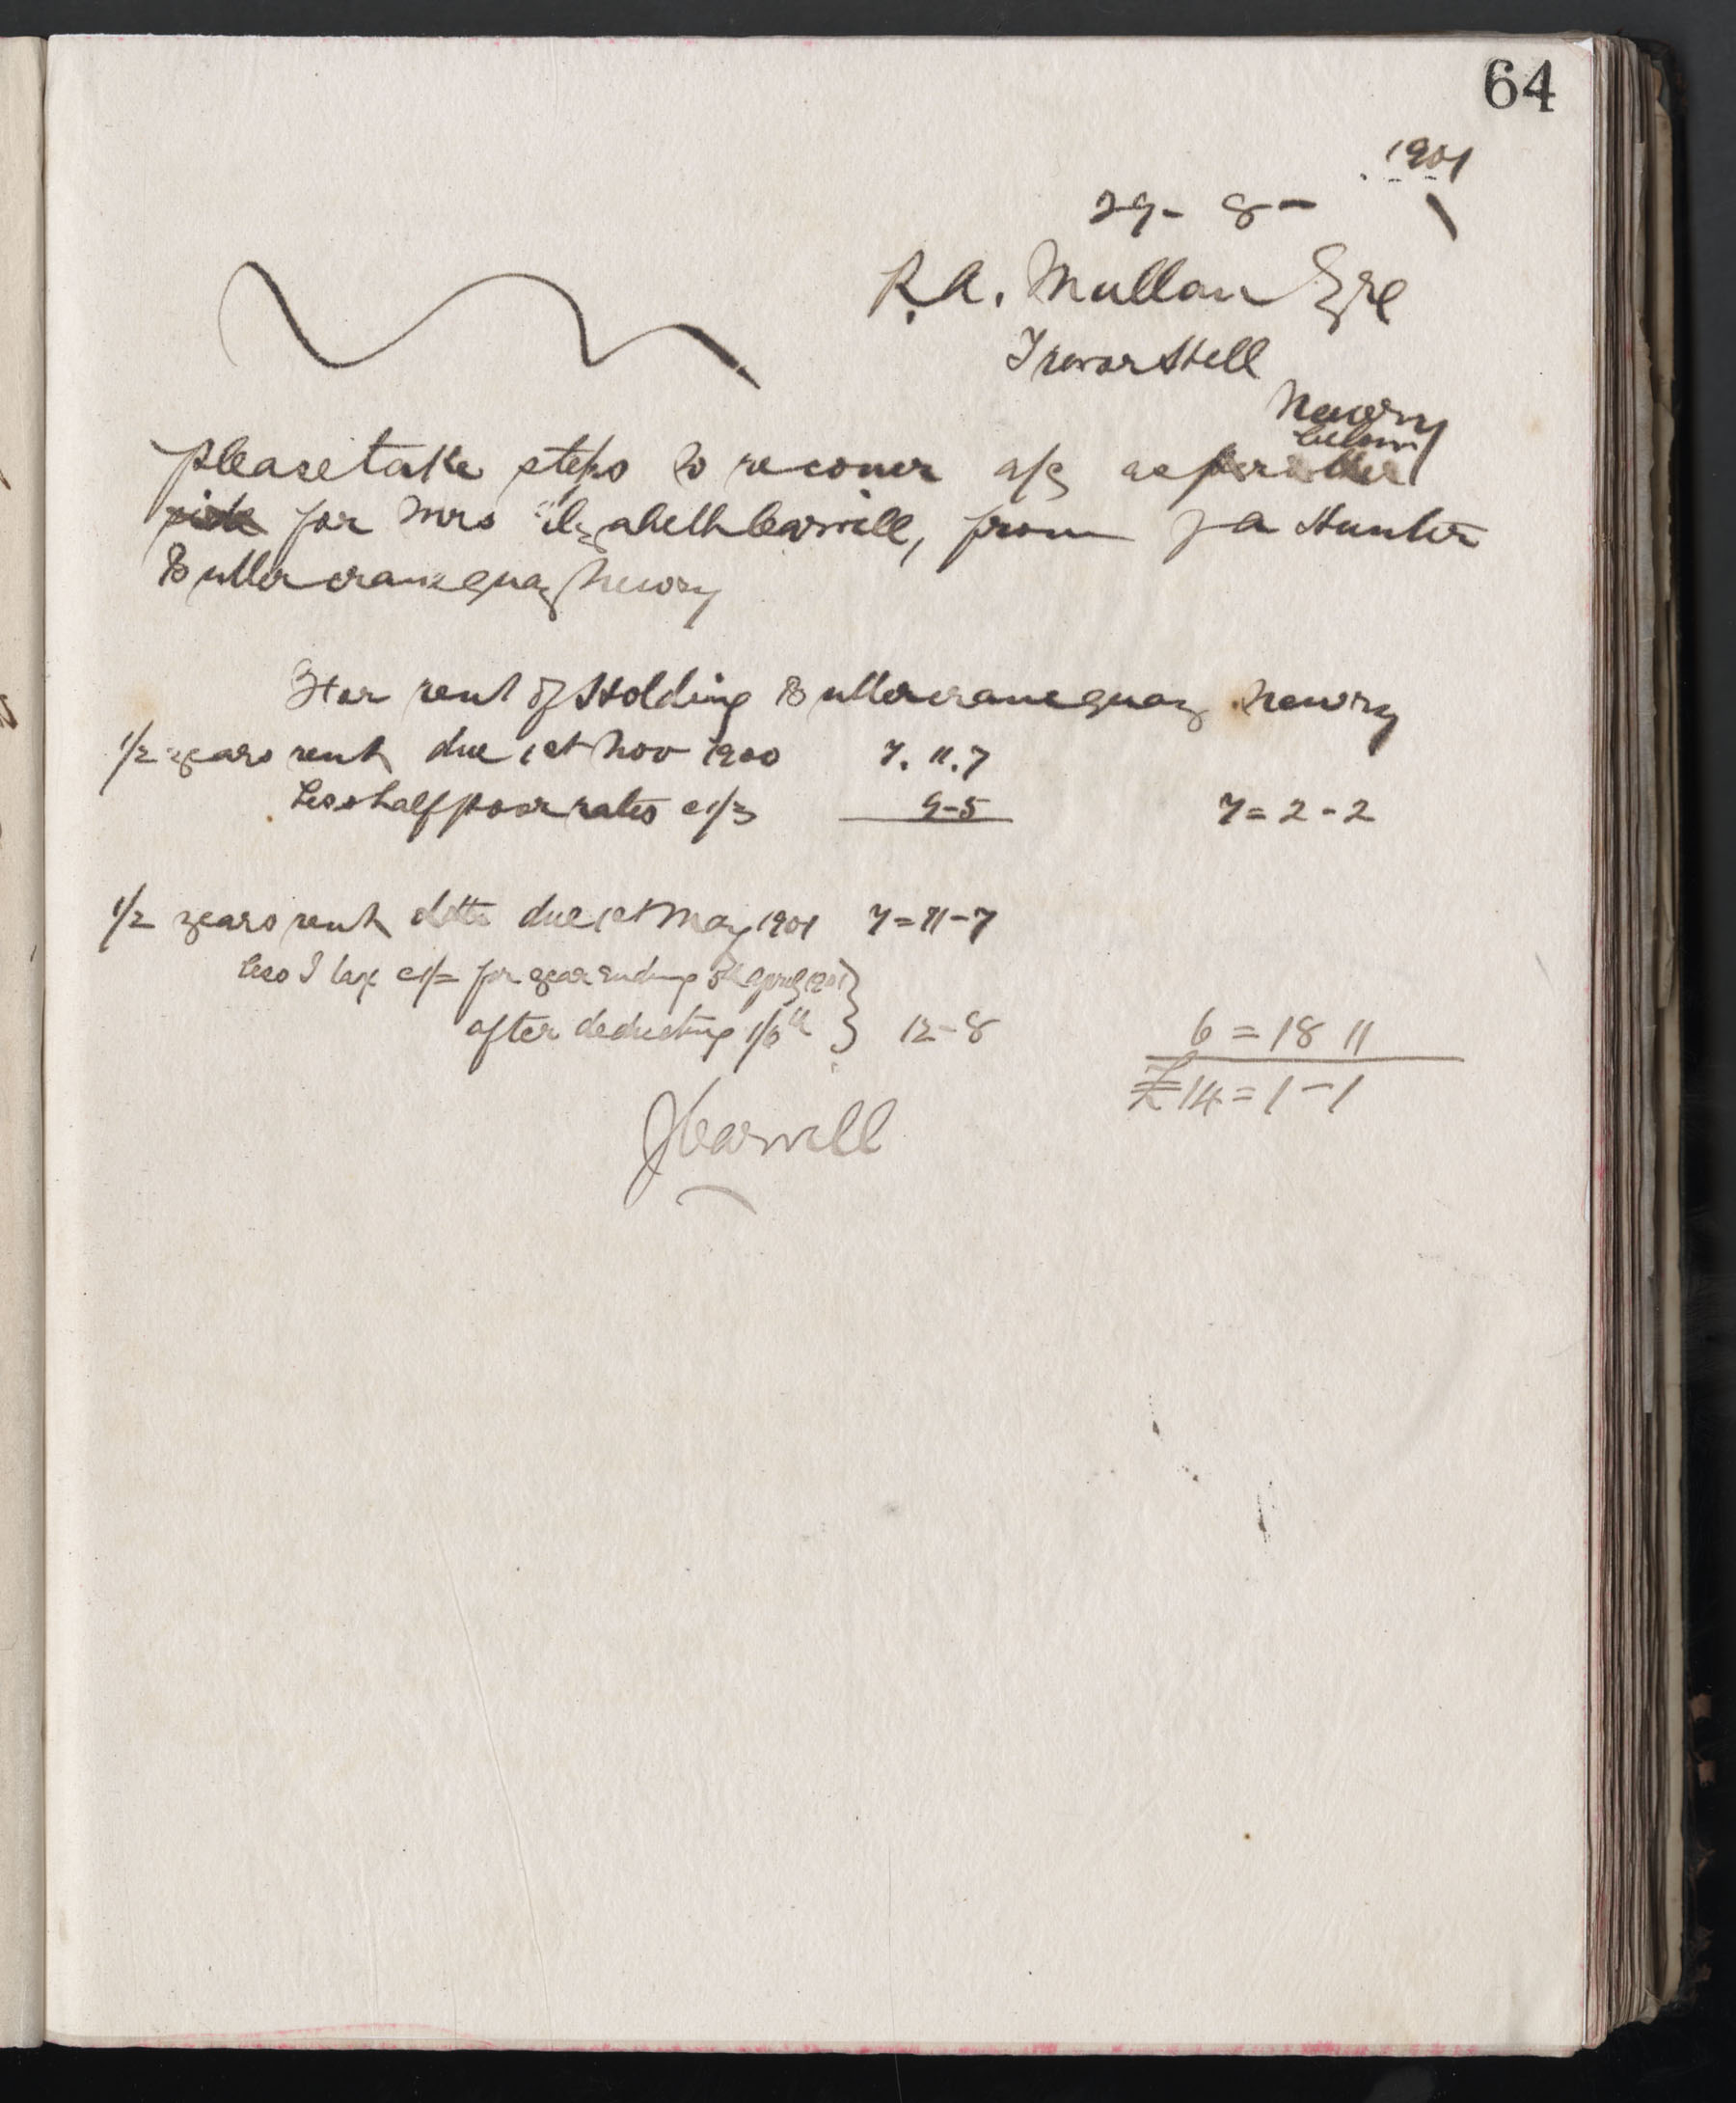 64
1901
29 - 8 -
R. A. Mullan Esre
Trevor Hill
Newry
below
Please take steps to recover a/c as per other
side for Mrs Elizabeth Carvill, from J A Hunter
Buttercrane quay Newry
For rent of Holding Buttercrane quay Newry
1/2 years rent due 1st Nov 1900 7. 11. 7
Less half poor rates @ 1/3 9-5 7 = 2 - 2
1/2 years rent ditto due 1st May 1901 7 = 11 - 7
less I tax @ 1/= for year ending 5th April 1901 }
after deducting 1/6th } 12 - 8 6 = 18 11
£14 = 1 - 1
J Carvill